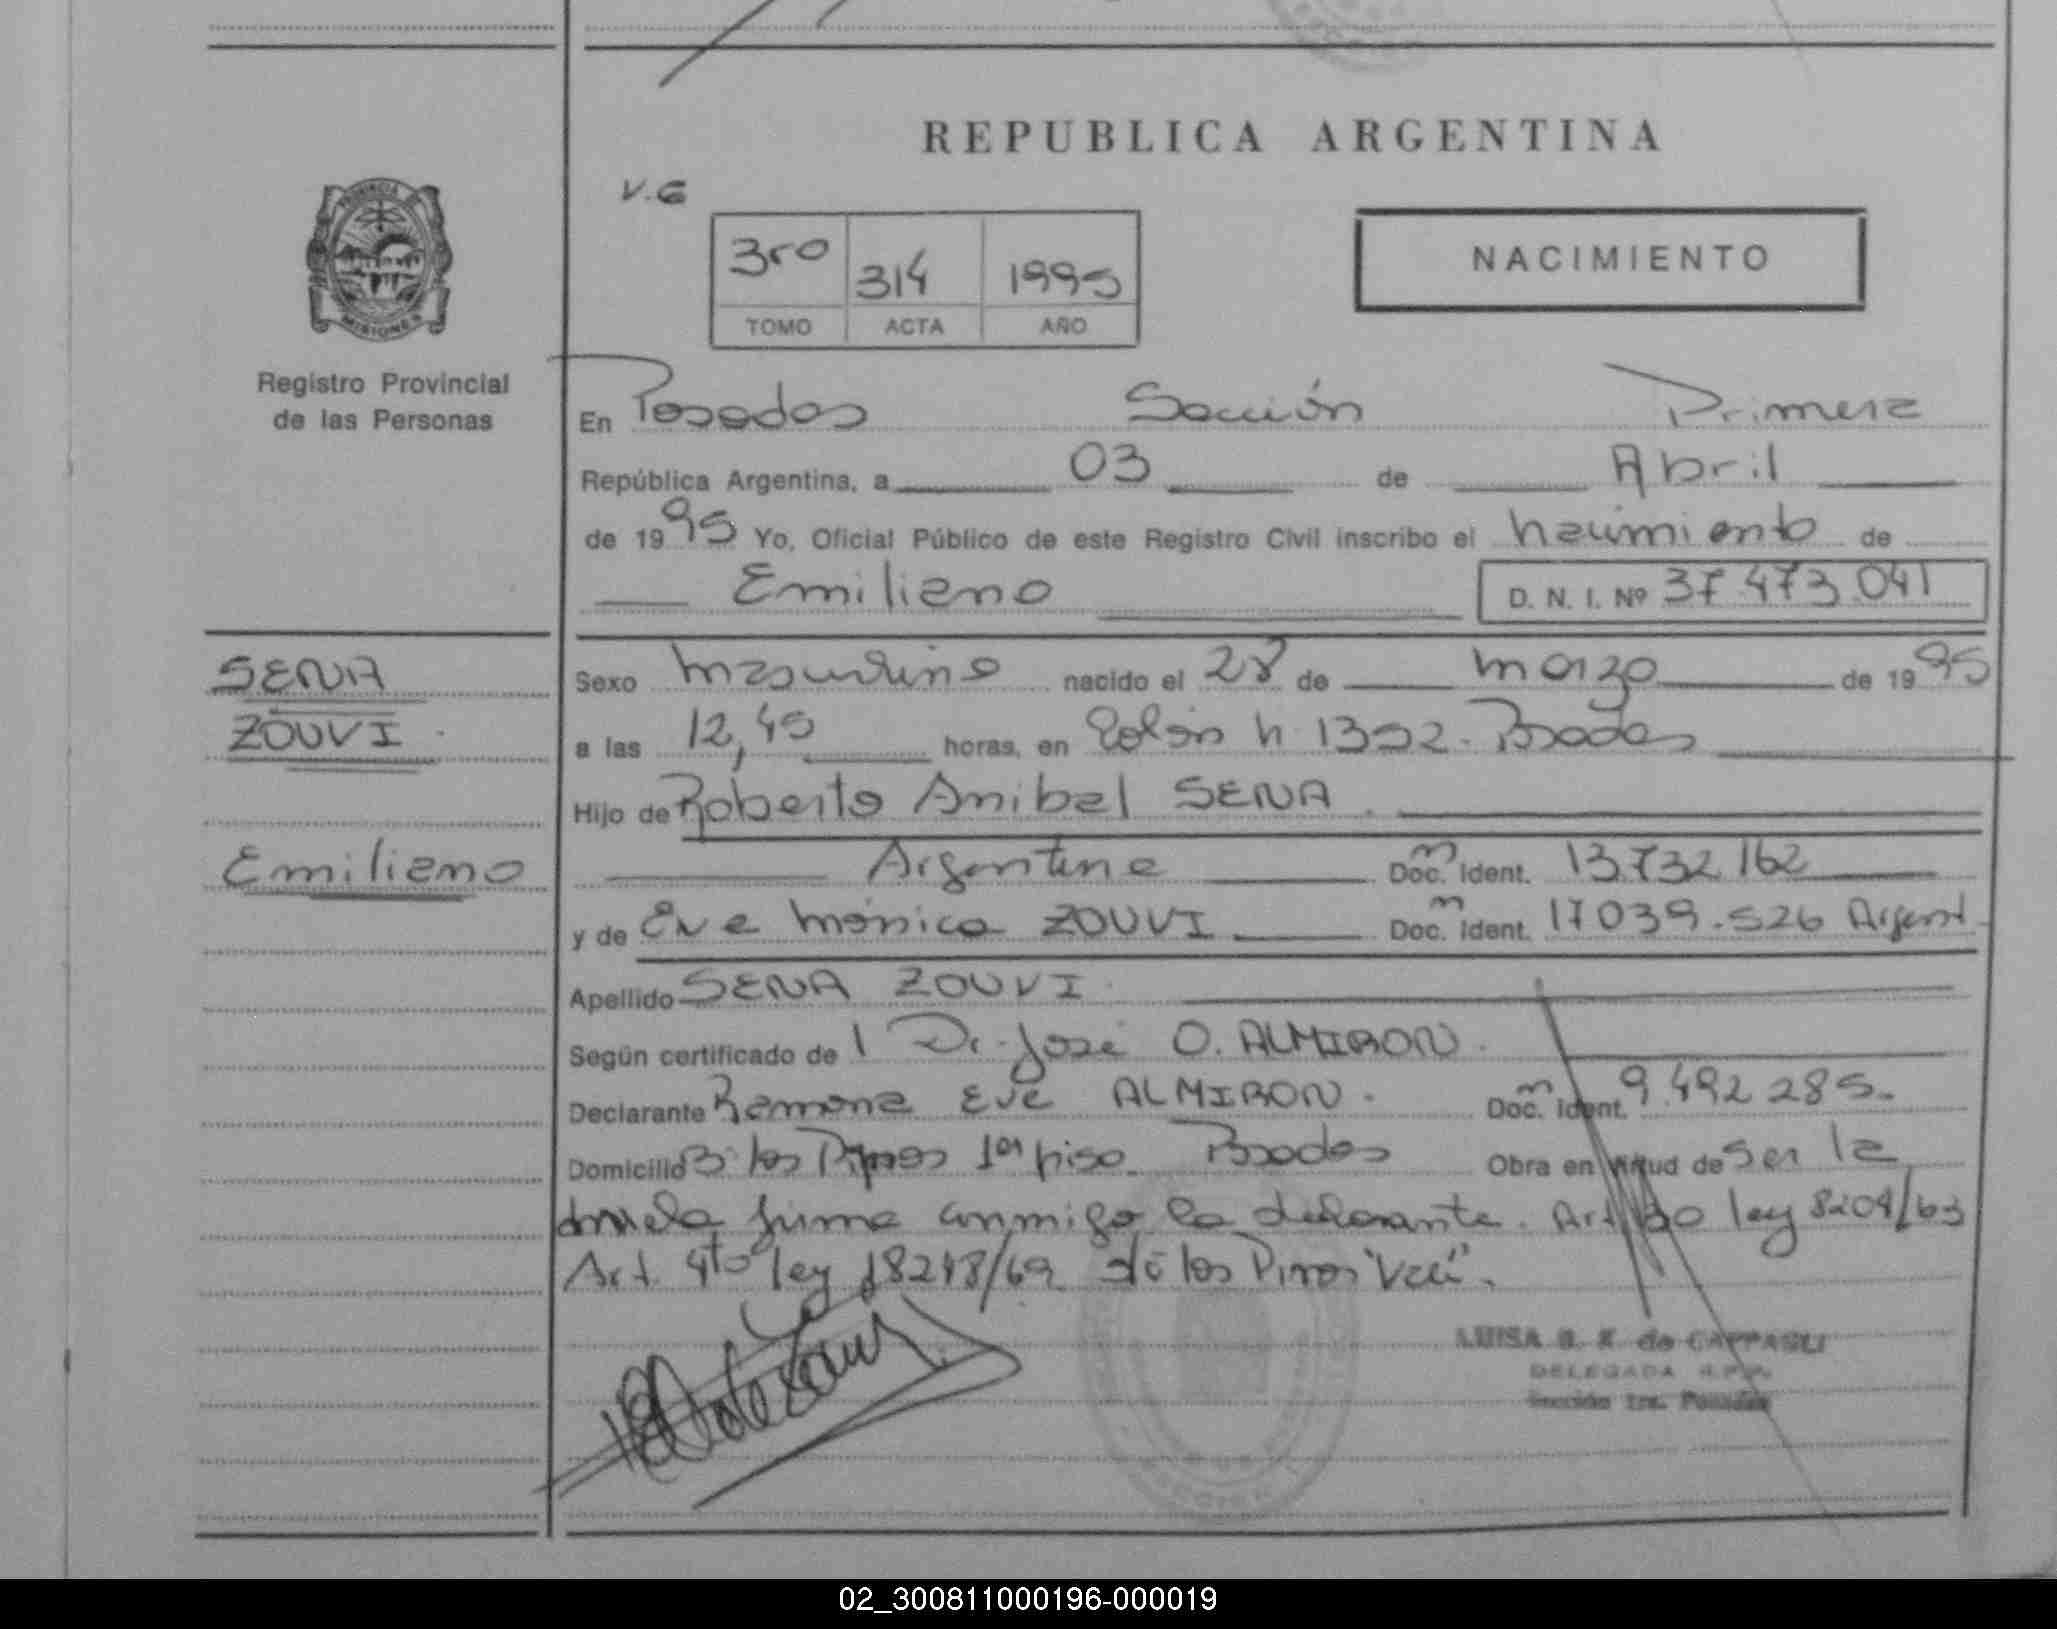 REPUBLICA ARGENTINA
V.G
3ro 314 1995
TOMO ACTA AÑO
NACIMIENTO
PROVINCIA DE
MISIONES
Registro Provincial
de las Personas
En Posadas Sección Primera
República Argentina, a 03 de Abril
de 1995 Yo, Oficial Público de este Registro Civil inscribo el nacimiento de
Emiliano D. N. I. Nº 37.473.041
SENA
ZOUVI
Emiliano
Sexo masculino nacido el 28 de marzo de 1995
a las 12,45 horas, en Colón n 1392. Posadas
Hijo de Roberto Anibal SENA
Argentina Doc. Ident. 13.732.162
y de Eva Mónica ZOUVI Doc. Ident. 17.039.526 Argent
Apellido SENA ZOUVI.
Según certificado de l Dr. José O. ALMIRON.
Declarante Ramona Eve ALMIRON. Doc. Ident. 9.492.285.
Domicilio los Pinos 1er piso. Posadas Obra en virtud de ser la
abuela firma conmigo la declarante. Art. ley 8204/63
Art. 4to ley 18248/69 los Pinos "Vale".
LUISA de CAPPAGLI
DELEGADA R.P.P.
Sección 1ra. Posadas
02_300811000196-000019